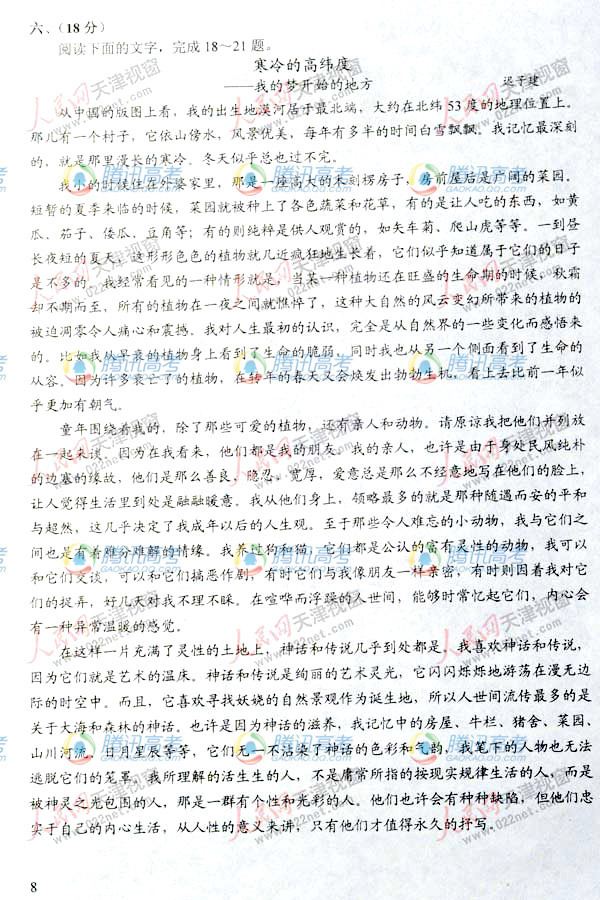 六、（18分）
阅读下面的文字，完成18～21题。
寒冷的高纬度
——我的梦开始的地方
迟子建
从中国的版图上看，我的出生地漠河居于最北端，大约在北纬53度的地理位置上。
那儿有一个村子，它依山傍水，风景优美，每年有多半的时间白雪飘飘。我记忆最深刻
的，就是那里漫长的寒冷。冬天似乎总也过不完。
我小的时候住在外婆家里，那是一座高大的木刻楞房子，房前屋后是广阔的菜园。
短暂的夏季来临的时候，菜园就被种上了各色蔬菜和花草，有的是让人吃的东西，如黄
瓜、茄子、倭瓜、豆角等；有的则纯粹是供人观赏的，如矢车菊、爬山虎等等。一到昼
长夜短的夏天，这形形色色的植物就几近疯狂地生长着，它们似乎知道属于它们的日子
是不多的。我经常看见的一种情形就是，当某一种植物还在旺盛的生命期的时候，秋霜
却不期而至，所有的植物在一夜之间就憔悴了，这种大自然的风云变幻所带来的植物的
被迫凋零令人痛心和震撼。我对人生最初的认识，完全是从自然界的一些变化而感悟来
的。比如我从早衰的植物身上看到了生命的脆弱，同时我也从另一个侧面看到了生命的
从容。因为许多衰亡了的植物，在转年的春天又会焕发出勃勃生机，看上去比前一年似
乎更加有朝气。
童年围绕着我的，除了那些可爱的植物，还有亲人和动物。请原谅我把他们并列放
在一起来谈。因为在我看来，他们都是我的朋友。我的亲人，也许是由于身处民风纯朴
的边塞的缘故，他们是那么善良、隐忍、宽厚，爱意总是那么不经意地写在他们的脸上，
让人觉得生活里到处是融融暖意。我从他们身上，领略最多的就是那种随遇而安的平和
与超然，这几乎决定了我成年以后的人生观。至于那些令人难忘的小动物，我与它们之
间也是有着难分难解的情缘。我养过狗和猫，它们都是公认的富有灵性的动物，我可以
和它们交谈，可以和它们搞恶作剧，有时它们与我像朋友一样亲密，有时则因着我对它
们的捉弄，好几天对我不理不睬。在喧哗而浮躁的人世间，能够时常忆起它们，内心会
有一种异常温暖的感觉。
在这样一片充满了灵性的土地上，神话和传说几乎到处都是。我喜欢神话和传说，
因为它们就是艺术的温床。神话和传说是绚丽的艺术灵光，它闪闪烁烁地游荡在漫无边
际的时空中。而且，它喜欢寻找妖娆的自然景观作为诞生地，所以人世间流传最多的是
关于大海和森林的神话。也许是因为神话的滋养，我记忆中的房屋、牛栏、猪舍、菜园、
山川河流、日月星辰等等，它们无一不沾染了神话的色彩和气韵，我笔下的人物也无法
逃脱它们的笼罩。我所理解的活生生的人，不是庸常所指的按现实规律生活的人，而是
被神灵之光包围的人，那是一群有个性和光彩的人。他们也许会有种种缺陷，但他们忠
实于自己的内心生活，从人性的意义来讲，只有他们才值得永久的抒写。
8